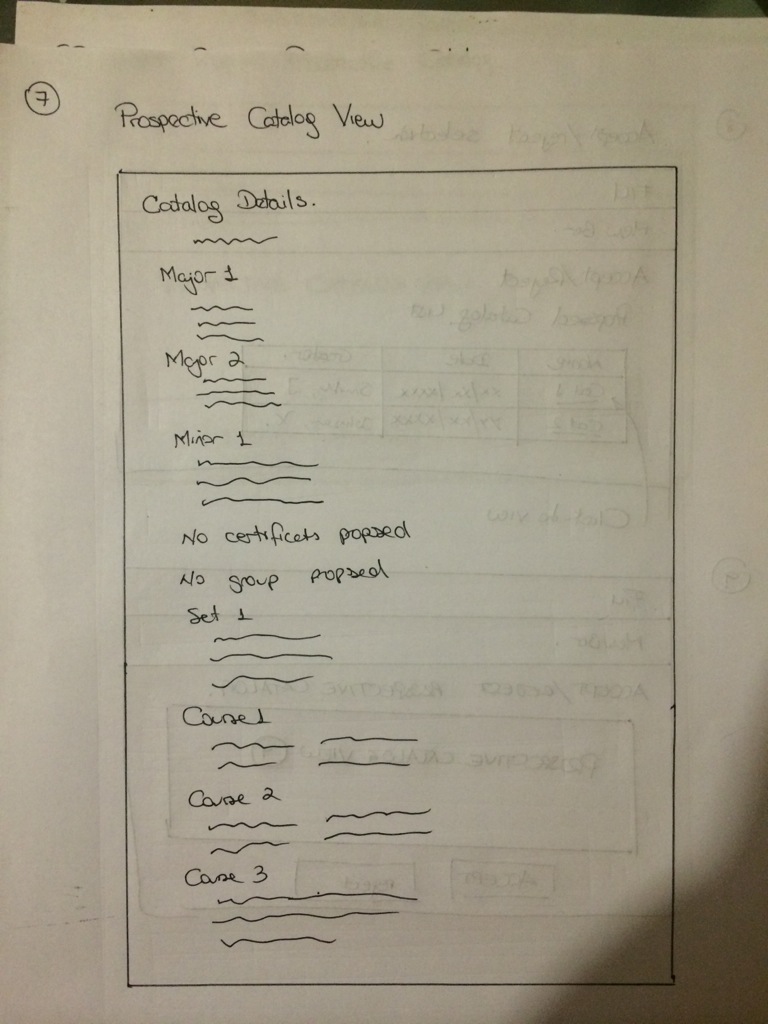 7
Prospective Catalog View
Catalog Details.
Major 1
Major 2
Minor 1
No certificets popsed
No group propsed
Set 1
Course 1
Course 2
Course 3